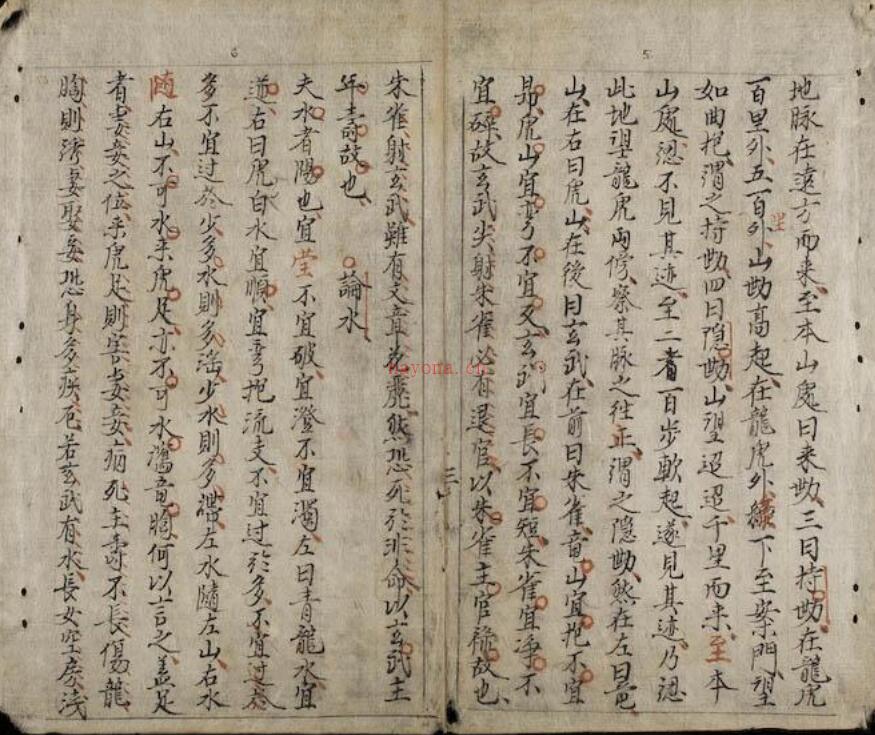 地脉在遠方而来至本山處曰来勢三曰持勢在龍虎
百里外五百外山勢高起在龍虎外下至案門望
如曲抱謂之持勢四曰隠勢山望迢迢千里而来至本
山處忽不見其迹至二者一百步軟起遂見其迹乃認
此地望龍虎両傍察其脉之徃正謂之隠勢然在左曰竜
山在右曰虎山在後曰玄武在前曰朱雀竜山宜抱不宜
昴虎山宜弯不宜叉玄武宜長不宜短朱雀宜淨不
宜碎故玄武尖射朱雀必有退官以朱雀主官禄故也
朱雀射玄武雖有文章然恐死於非命以玄武主
年壽故也 論水
夫水者陽也宜不宜破宜澄不宜濁左曰青龍水宜
逆右曰虎白水宜順宜弯抱流支不宜過於多不宜過於
多不宜過於少多水則多滛少水則多滯左水随左山右水
随右山不可水来虎足亦不可水蕩竜胸何以言之盖足
者妻妾之位来虎足則害妻妾病死主壽不長傷龍
胸則妻娶妾恐身多疾厄若玄武有水長女空房浅
5
6
三
hayona.cn